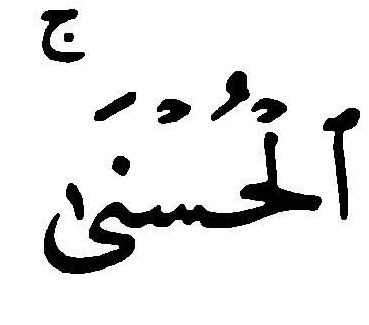 ٱلْحُسْنَىٰ ۚ